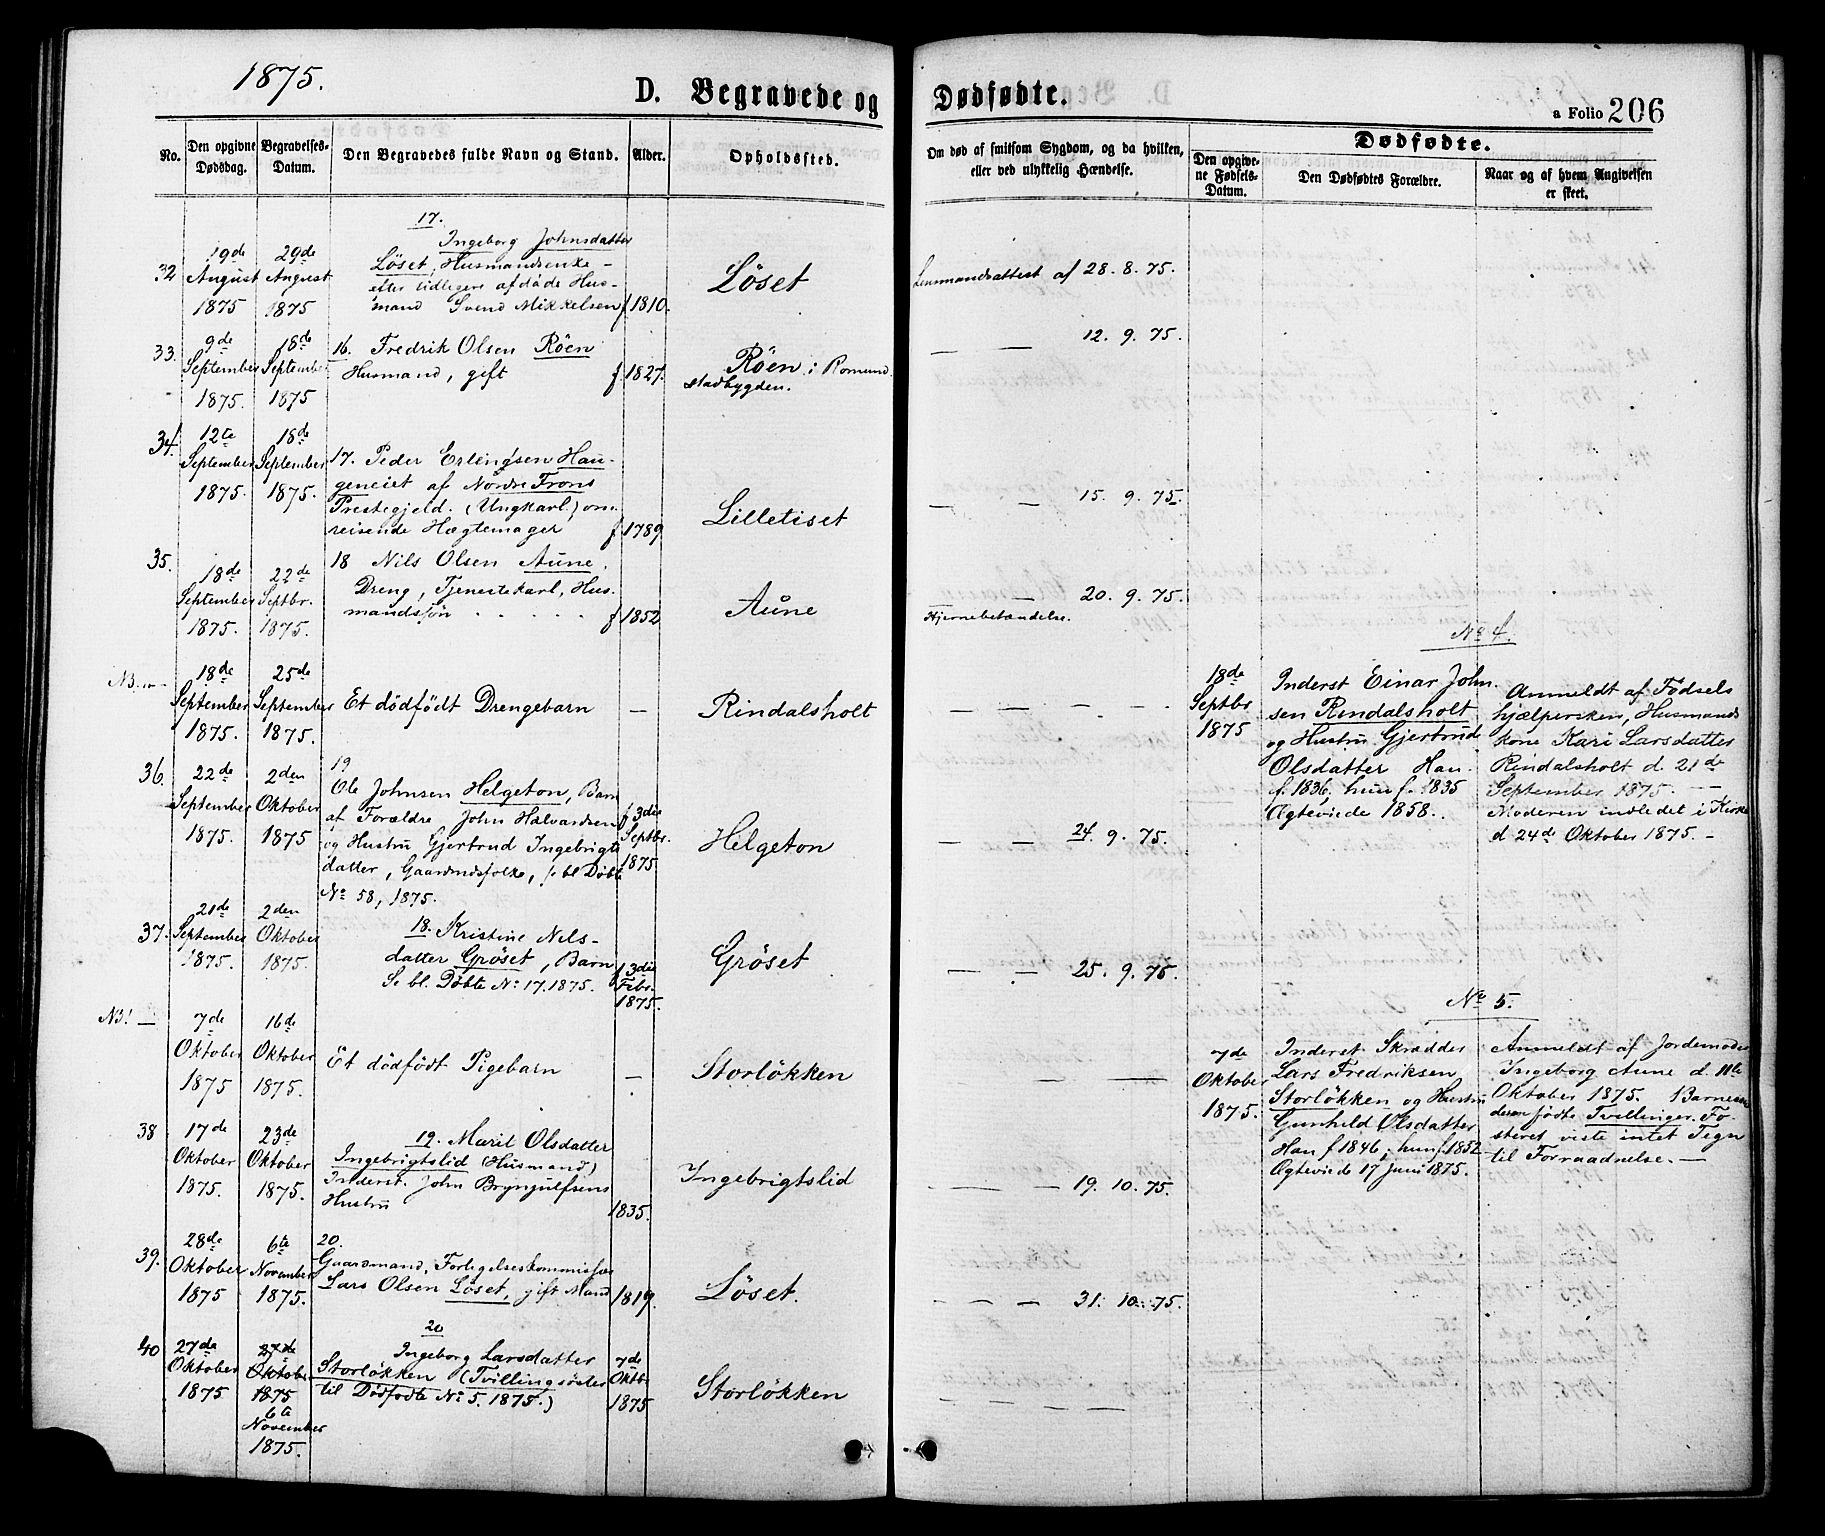 1875.
D. Begravede og
Dødfødte.
a Folio 206
No.
Den opgivne Dødsdag.
Begravelses-Datum.
Den Begravedes fulde Navn og Stand.
Alder.
Opholdssted.
Om død af smitsom Sygdom, og da hvilken,
eller ved ulykkelig Hændelse.
Dødfødte.
Den opgivne Fødsels-Datum.
Den Dødfødtes Forældre.
Naar og af hvem Angivelsen
er skeet.
32
19de August 1875
29de August 1875
17.
Ingeborg Johnsdatter
Löset, Husmandsenke -
efter tidligere afdöde Hus-
mand Svend Mikkelsen
f 1810.
Löset
Lensmandsattest af 28. 8. 75.
33.
9de September 1875.
18de September 1875
16. Fredrik Olsen Röen
Husmand, gift
f. 1827.
Röen i Romund-
stadbygden.
— — 12. 9. 75.
34.
12te September 1875.
18de September 1875.
17. Peder Erlingsen Hau-
geneiet af Nordre Frons
Prestegjeld. (Ungkarl) om-
reisende Hægtemager
f 1789
Lilletiset
— — 15. 9. 75.
35.
18de September 1875.
22de Septbr. 1875.
18 Nils Olsen Aune.
Dreng, Tjenestekarl, Hus-
mandssön
f 1852
Aune
— 20. 9. 75.
Hjernebetændelse.
NB. —
18de September 1875.
25de September 1875.
Et dödfödt Drengebarn
—
Rindalsholt
— — — —
No 4.
18de Septbr 1875
Inderst Einar John-
sen Rindalsholt
og Hustru Gjertrud
Olsdatter Han
f. 1836, hun f. 1835
Ægteviede 1858.
Anmeldt af Födsels
hjælpersken, Husmands
kone Kari Larsdatter
Rindalsholt d. 21de
September 1875. —
Moderen indledet i Kirke
d 24de Oktober 1875. -
36.
22de September 1875.
2den Oktober 1875
19
Ole Johnsen Helgeton, Barn
af Forældre, John Halvardsen
og Hustru Gjertrud Ingebrigts
datter, Gaardmdsfolke, s. bl Döbte
No 58, 1875.
f 3die Septbr. 1875
Helgeton
— — 24. 9. 75.
37.
21de September 1875.
2den Oktober 1875.
18. Kristine Nils-
datter Gröset, Barn
Se bl. Döbte No 17. 1875.
f 3die Febr. 1875.
Gröset
— - 25. 9. 75.
NB! —
7de Oktober 1875
16de Oktober 1875.
Et dödfödt Pigebarn
—
Storlökken
— —
No 5.
7de Oktober 1875.
Inderst Skrædder
Lars Fredriksen
Storlökken og Hustru
Gunhild Olsdatter
Han f 1846, hun f. 1852
Ægteviede 17 Juni 1875.
Anmeldt af Jordemoder
Ingeborg Aune d. 11te
Oktober 1875. Barnem
deren födte Tvillinger. Fo-
steret viste intet Tegn
til Forraadnelse. —
38
17de Oktober 1875.
23de Oktober 1875.
19. Marit Olsdatter
Ingebrigtslid (Husmand)
Inderst. John Brynjulfsens
Hustru
1835.
Ingebrigtslid
— — 19. 10. 75.
39.
28de Oktober 1875
6te November 1875.
20.
Gaardmand, Forligelseskommissær
Lars Olsen Löset, gift Mand
1819.
Löset.
— — — 31. 10. 75.
40
27de Oktober 1875
27de Oktober 1875
6te November 1875.
20
Ingeborg Larsdatter
Storlökken (Tvillingsöster
til Dödfødte No 5. 1875.)
7de Oktbr 1875
Storlökken
— — — —